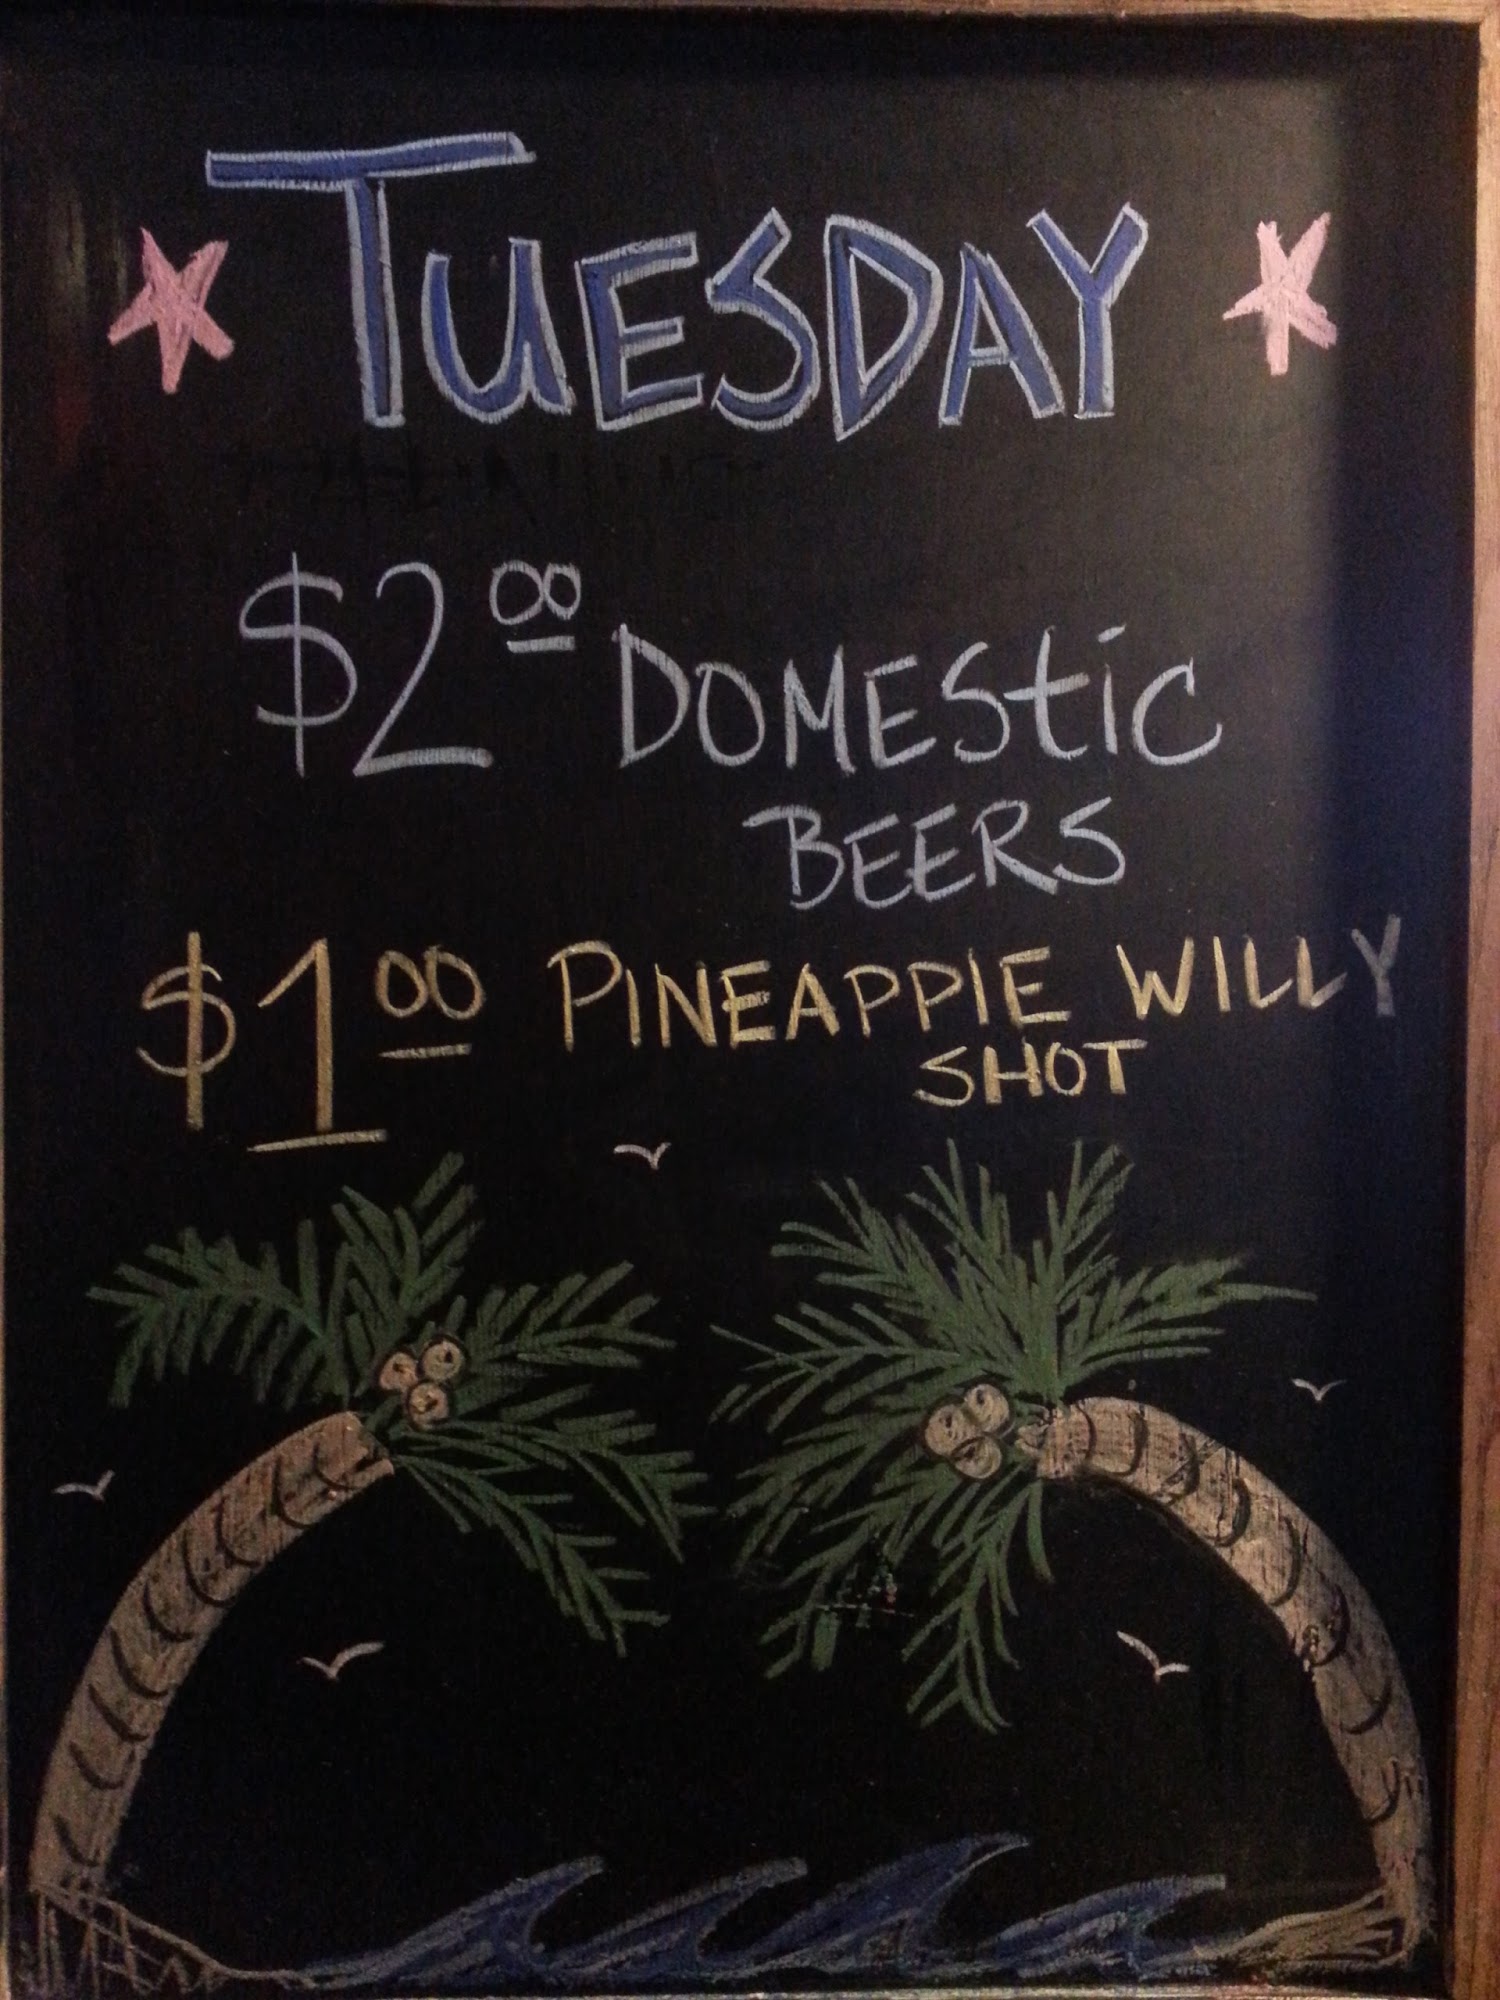 TUESDAY
$2.00 DOMEStiC
BEERS
$1.00 PINEAPPIE WILLY
SHOT